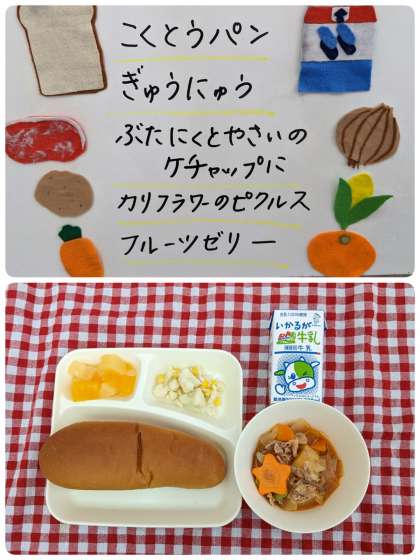 こくとうパン
ぎゅうにゅう
ぶたにくとやさいの
ケチャップに
カリフラワーのピクルス
フルーツゼリー
いかるが
牛乳